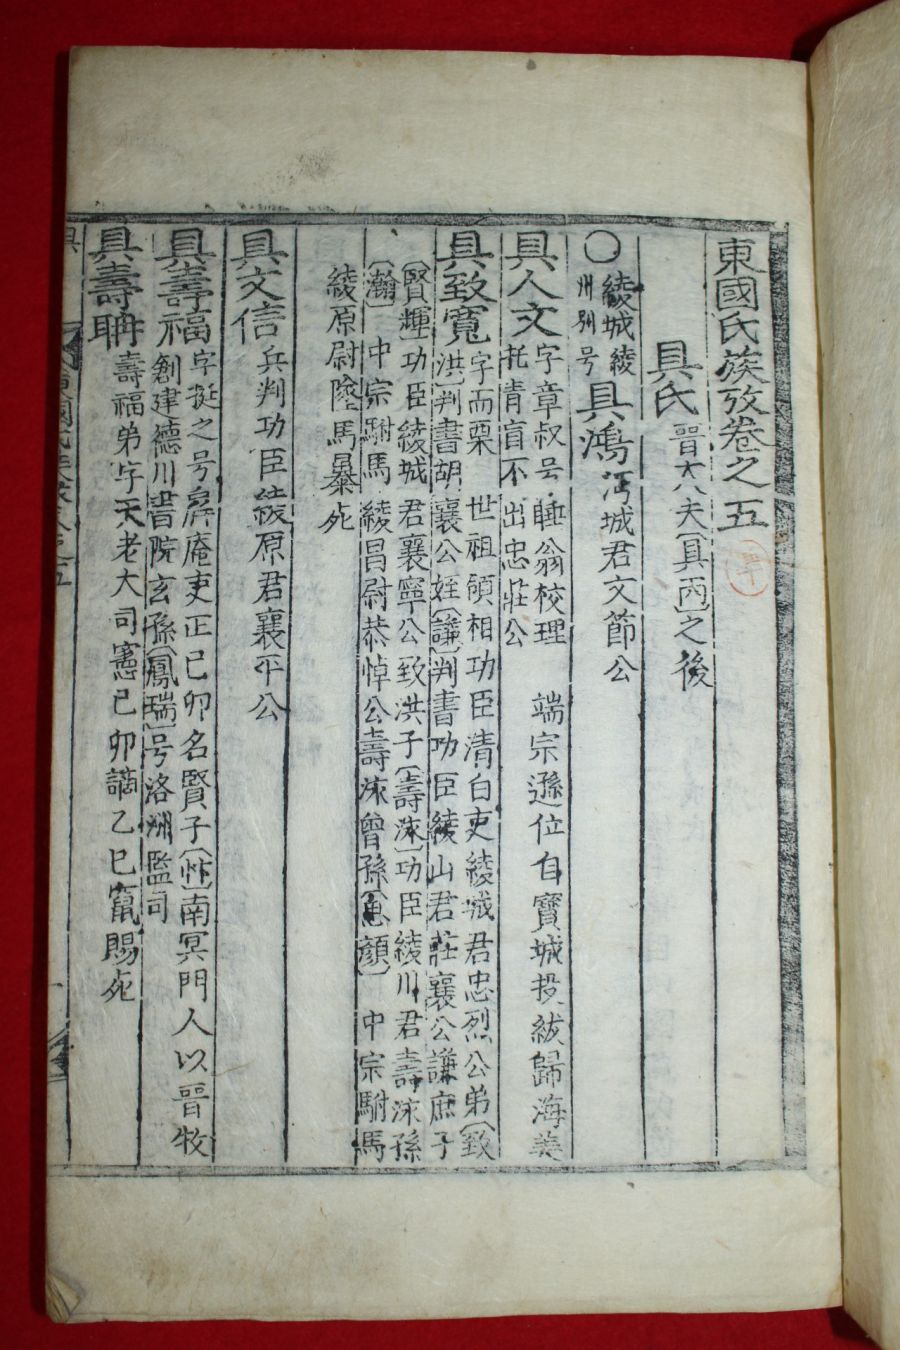 東國氏族攷卷之五
具氏 晉大夫具丙之後
〇 綾城綾
州別号
具鴻 沔城君文節公
具人文 字章叔号睡翁校理 端宗遜位自寶城投紱歸海美
托青盲不出忠莊公
具致寬 字而栗 世祖領相功臣清白吏綾城君忠烈公弟致
洪判書胡襄公姪謙判書功臣綾山君莊襄公謙庶子
賢輝功臣綾城君襄寧公致洪子壽永功臣綾川君壽永孫
瀚 中宗駙馬 綾昌尉恭悼公壽永曾孫思顔 中宗駙馬
綾原尉墜馬暴死
具文信 兵判功臣綾原君襄平公
具壽福 字挺之号屏庵吏正己卯名賢子忭南冥門人以晉牧
創建德川書院玄孫鳳瑞号洛洲監司
具壽聃 壽福弟字天老大司憲己卯謫乙巳竄賜死